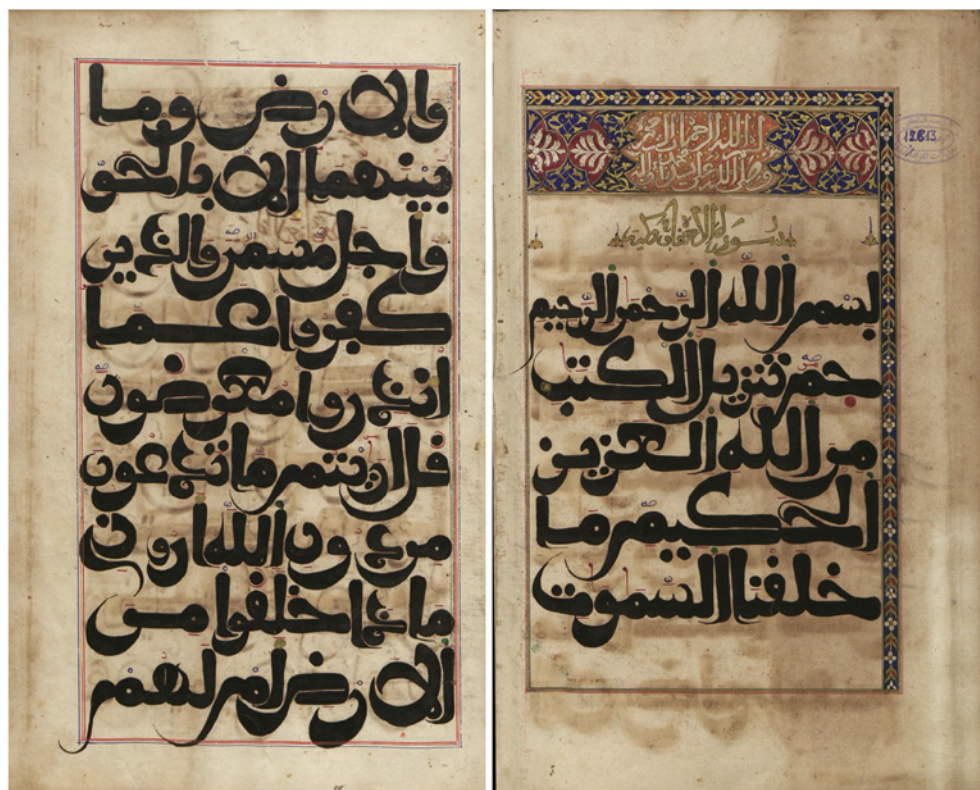 بسم الله الرحمن الرحيم
وصلى الله على سيدنا محمد واله
سورة الاحقاف مكية
بسم الله الرحمن الرحيم
حم تنزيل الكتب
من الله العزيز
الحكيم ما
خلقنا السموت
والارض وما
بينهما الا بالحق
واجل مسمى والذين
كفروا عما
انذروا معرضون
قل اريتم ما تدعون
من دون الله اروني
ماذا خلقوا من
الارض ام لهم